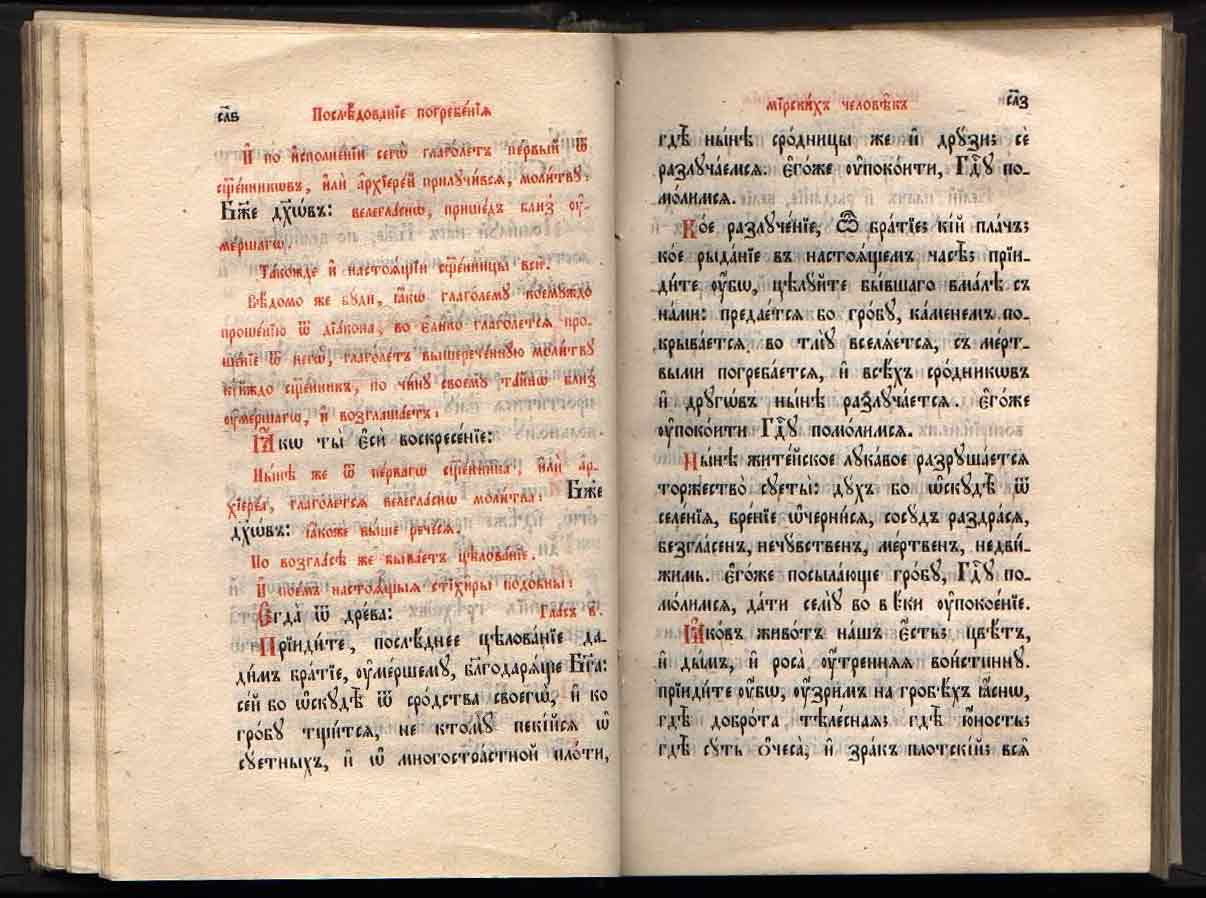 сл҃ѕ
Послѣ́дованїе погребе́нїѧ
И҆ по и҆сполне́нїи сегѡ̀ глаго́летъ пе́рвый ѿ
сщ҃е́нникѡвъ, и҆лѝ а҆рхїере́й прилучи́всѧ, моли́тву:
Бж҃е дх҃ѡ́въ: велегла́снѡ, прише́дъ бли́з̾ ᲂу҆-
ме́ршагѡ.
Та́кожде и҆ настоѧ́щїи сщ҃е́нницы всѝ.
Вѣ́домо же бу́ди, ꙗ҆́кѡ глаго́лему коему́ждо
проше́нїю ѿ дїа́кона, во є҆ли́кѡ глаго́летсѧ про-
ше́нїе ѿ негѡ̀, глаго́летъ вышерече́нную моли́тву
кі́йждо сщ҃е́нникъ, по чи́ну своему̀ та́йнѡ бли́з̾
ᲂу҆ме́ршагѡ, и҆ возглаша́етъ:
Ꙗ҆́кѡ ты̀ є҆сѝ воскресе́нїе:
Ны́нѣ же ѿ пе́рвагѡ сщ҃е́нника, и҆лѝ а҆р-
хїере́а, глаго́летсѧ велегла́снѡ моли́тва: Бж҃е
дх҃ѡ́въ: ꙗ҆́коже вы́ше рече́сѧ.
По во́згласѣ же быва́етъ цѣлова́нїе.
И҆ пое́мъ настоѧ́щыѧ стїхи̑ры подо́бны:
Є҆гда̀ ѿ дре́ва: Гла́съ в҃.
Прїиди́те, послѣ́днее цѣлова́нїе да-
ди́мъ бра́тїе, ᲂу҆ме́ршему, благодарѧ́ще Бг҃а:
се́й бо ѡ҆скудѣ̀ ѿ сро́дства своегѡ̀, и҆ ко
гро́бу тщи́тсѧ, не ктому̀ пекі́йсѧ ѡ҆
су́етныхъ, и҆ ѡ҆ многостра́стной пло́ти,
сл҃з
мїрски́хъ человѣ́къ
гдѣ̀ ны́нѣ сро́дницы же и҆ дру́зи; сѐ
разлуча́емсѧ: є҆го́же ᲂу҆поко́ити, Гдⷭ҇у по-
мо́лимсѧ.
Ко́е разлуче́нїе, Ѽ бра́тїе; кі́й пла́чъ;
ко́е рыда́нїе въ настоѧ́щемъ часѣ̀; прїи-
ди́те ᲂу҆̀бѡ, цѣлу́йте бы́вшаго вма́лѣ съ
на́ми: предае́тсѧ бо гро́бу, ка́менемъ по-
крыва́етсѧ, во тму̀ вселѧ́етсѧ, съ ме́рт-
выми погреба́етсѧ, и҆ всѣ́хъ сро́дникѡвъ
и҆ другѡ́въ ны́нѣ разлуча́етсѧ. Є҆го́же
ᲂу҆поко́ити Гдⷭ҇у помо́лимсѧ.
Ны́нѣ жите́йское лука́вое разруша́етсѧ
торжество̀ суеты̀: ду́хъ бо ѡ҆скудѣ̀ ѿ
селе́нїѧ, бре́нїе ѡ҆черни́сѧ, сосу́дъ раздра́сѧ,
безгла́сенъ, нечу́вственъ, ме́ртвенъ, недви́-
жимь. Є҆го́же посыла́юще гро́бу, Гдⷭ҇у по-
мо́лимсѧ, да́ти сему̀ во вѣ́ки ᲂу҆покое́нїе.
Ꙗ҆ко́въ живо́тъ на́шъ є҆́сть; цвѣ́тъ,
и҆ ды́мъ, и҆ роса̀ ᲂу҆́тренняѧ вои́стинну.
прїиди́те ᲂу҆̀бѡ, ᲂу҆́зримъ на гробѣ́хъ ꙗ҆́снѡ,
гдѣ̀ добро́та тѣле́снаѧ; гдѣ̀ ю҆́ность;
гдѣ̀ су́ть ѻ҆чеса̀, и҆ зра́къ пло́тскїй; всѧ̑